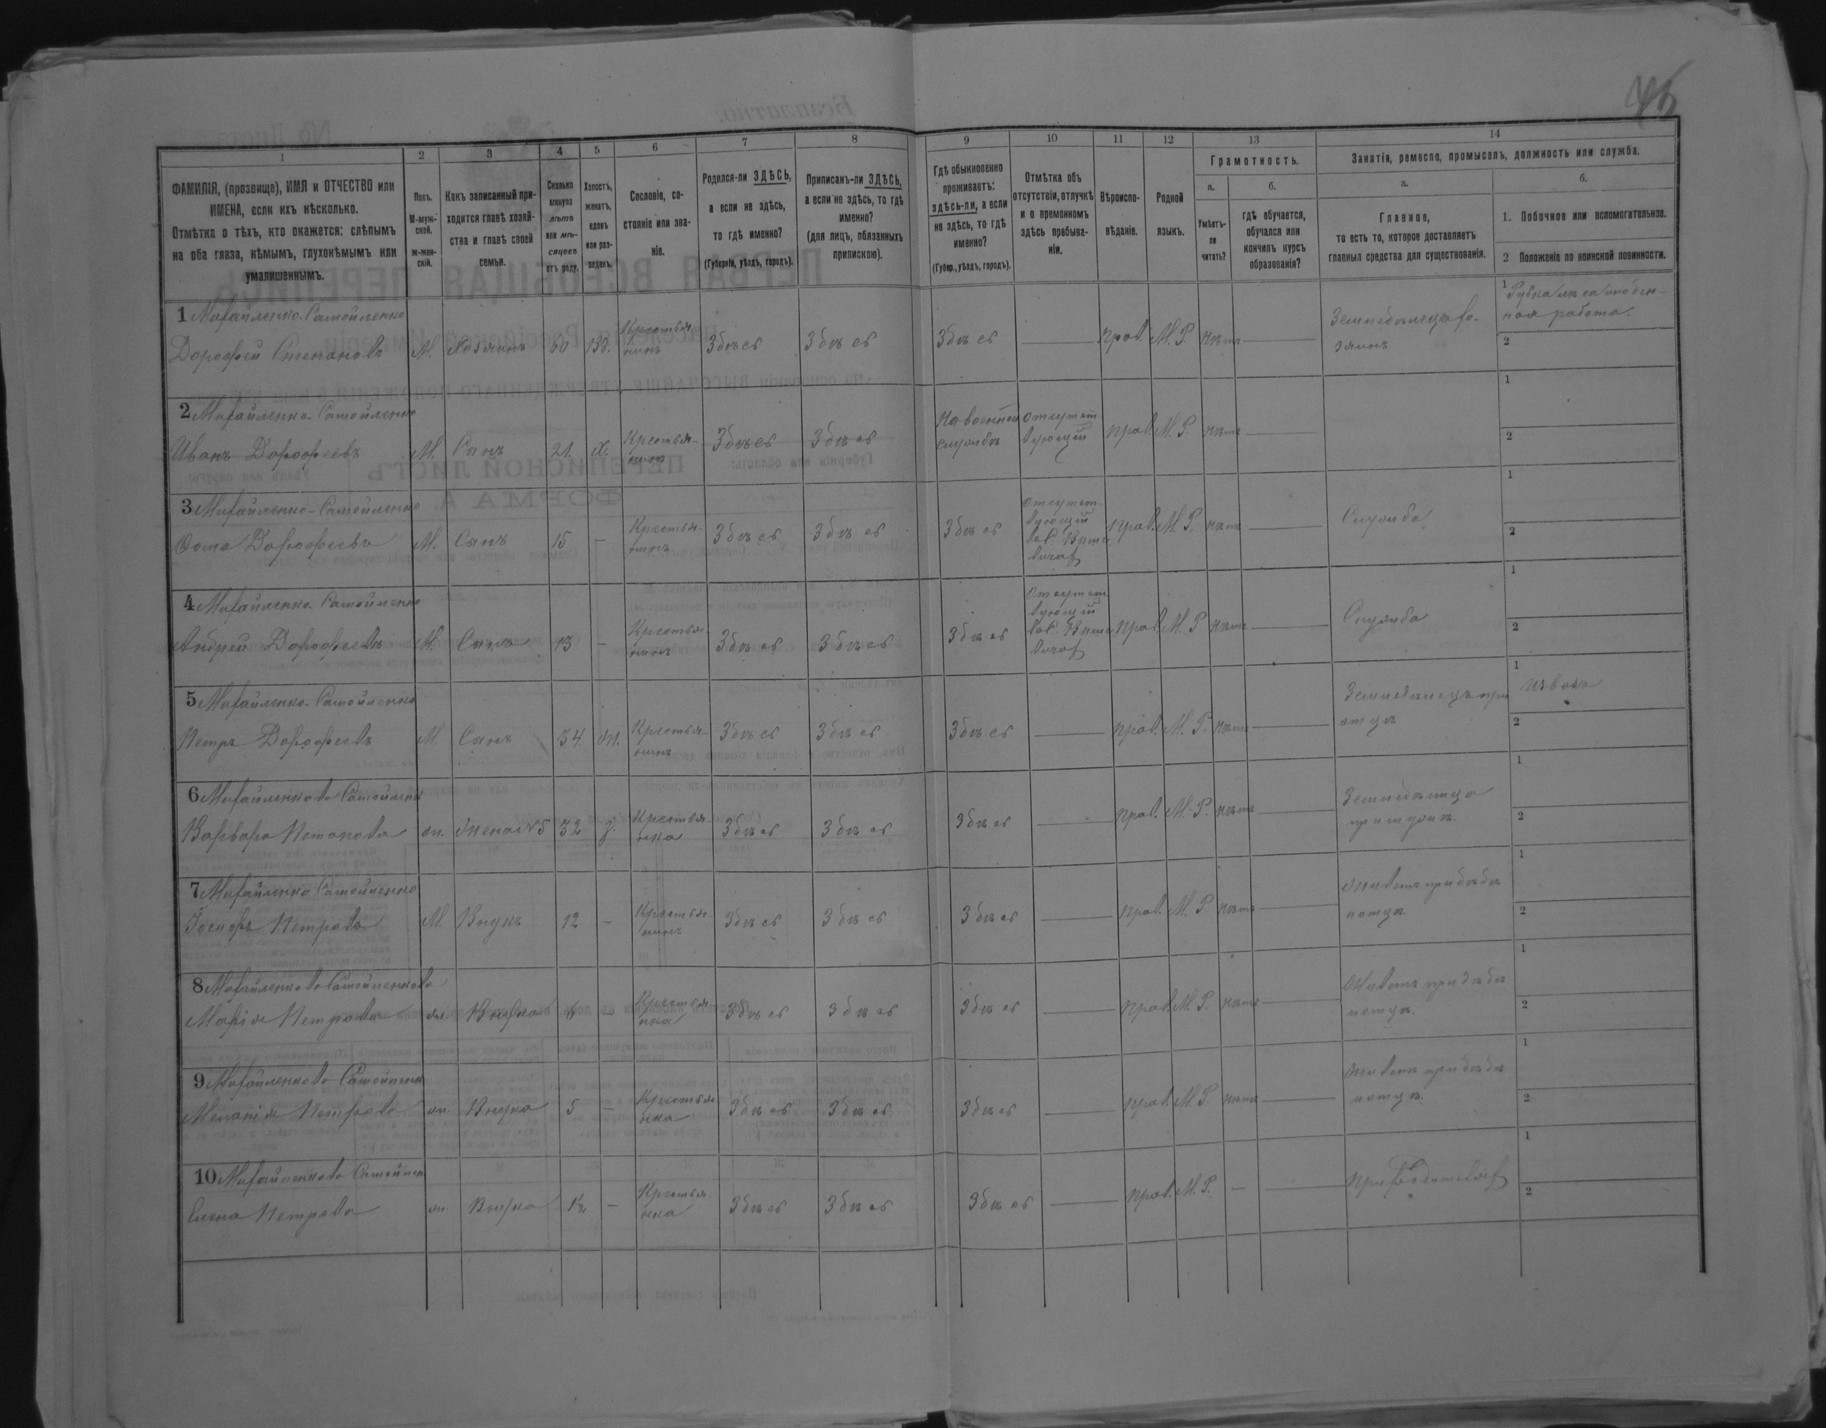 46
1 2 3 4 5 6 7 8 9 10 11 12 13 14
ФАМИЛІЯ, (прозвище), ИМЯ и ОТЧЕСТВО или
ИМЕНА, если ихъ нѣсколько.
Отмѣтка о тѣхъ, кто окажется: слѣпымъ
на оба глаза, нѣмымъ, глухонѣмымъ или
умалишеннымъ.
Полъ.
М-муж-
ской.
Ж-жен-
скій.
Какъ записанный при-
ходится главѣ хозяй-
ства и главѣ своей
семьи.
Сколько
минуло
лѣтъ
или мѣ-
сяцевъ
отъ роду.
Холостъ,
женатъ,
вдовъ
или раз-
веденъ.
Сословіе, со-
стояніе или зва-
ніе.
Родился-ли ЗДѢСЬ,
а если не здѣсь,
то гдѣ именно?
(Губернія, уѣздъ, городъ).
Приписанъ-ли ЗДѢСЬ,
а если не здѣсь, то гдѣ
именно?
(для лицъ, обязанныхъ
припискою).
Гдѣ обыкновенно
проживаетъ:
здѣсь-ли, а если
не здѣсь, то гдѣ
именно?
(Губер., уѣздъ, городъ).
Отмѣтка объ
отсутствіи, отлучкѣ
и о временномъ
здѣсь пребыва-
ніи.
Вѣроиспо-
вѣданіе.
Родной
языкъ.
Грамотность.
а.
Умѣетъ-
ли
читать?
б.
гдѣ обучается,
обучался или
кончилъ курсъ
образованія?
Занятія, ремесло, промыселъ, должность или служба.
а.
Главное,
то есть то, которое доставляетъ
главныя средства для существованія.
б.
1. Побочное или вспомогательное.
2 Положеніе по воинской повинности.
1 Михайленко-Самойленко
Дорофей Степановъ М. Хозяинъ 60 вд. Крестья-
нинъ Здѣсь Здѣсь Здѣсь — прав. М.Р. нѣтъ — Земледѣлецъ хо-
зяинъ
1 Рубка лѣса поден-
ная работа.
2
2 Михайленко-Самойленко
Иванъ Дорофеевъ М. Сынъ 21. х. Крестья-
нинъ Здѣсь Здѣсь На военной
службѣ отсутст
вующій прав. М.Р. нѣтъ —
1
2
3 Михайленко-Самойленко
Фома Дорофеевъ М. Сынъ 15 — Крестья-
нинъ Здѣсь Здѣсь Здѣсь отсутст
вующій прав. М.Р. нѣтъ — Служба
1
2
4 Михайленко-Самойленко
Андрей Дорофеевъ М. Сынъ 13 — Крестья-
нинъ Здѣсь Здѣсь Здѣсь отсутст
вующій прав. М.Р. нѣтъ — Служба
1
2
5 Михайленко-Самойленко
Петръ Дорофеевъ М. Сынъ 34 ж. Крестья-
нинъ Здѣсь Здѣсь Здѣсь — прав. М.Р. нѣтъ — Земледѣлецъ при
отцѣ
1 Извозъ
2
6 Михайленкова Самойленк
Варвара ж. Жена №5 32 з. Крестья-
нка Здѣсь Здѣсь Здѣсь — прав. М.Р. нѣтъ — Земледѣлица
при мужѣ
1
2
7 Михайленко Самойленко
Іосифъ Петровъ М. Внукъ 12 — Крестья-
нинъ Здѣсь Здѣсь Здѣсь — прав. М.Р. нѣтъ — Живетъ при дѣдѣ
и отцѣ
1
2
8 Михайленкова Самойленкова
Марія Петрова ж. Внучка Крестья-
нка Здѣсь Здѣсь Здѣсь — прав. М.Р. нѣтъ — Живетъ при дѣдѣ
и отцѣ.
1
2
9 Михайленкова Самойленк
Меланія Петрова ж. Внучка 5 — Крестья-
нка Здѣсь Здѣсь Здѣсь — прав. М.Р. нѣтъ — Живетъ при дѣдѣ
и отцѣ.
1
2
10 Михайленкова Самойлен
Елена Петрова ж. Внучка 1½ — Крестья-
нка Здѣсь Здѣсь Здѣсь — прав. М.Р. — — При родителяхъ
1
2